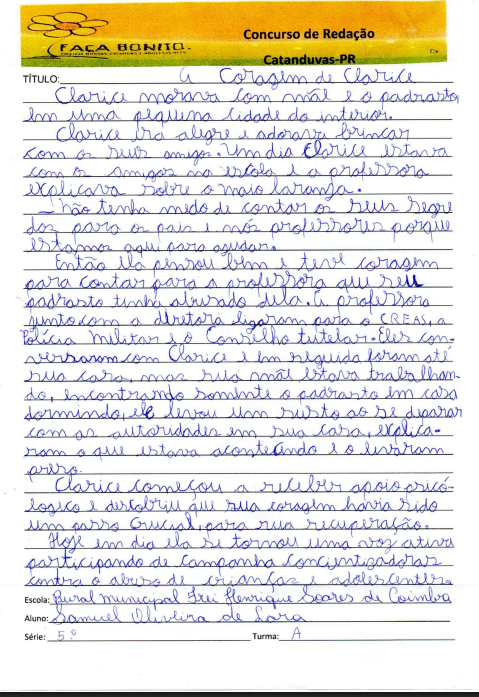 FAÇA BONITO.
Concurso de Redação
Catanduvas-PR
TÍTULO: A Coragem de Clarice
Clarice morava com mãe e o padrasto,
em uma pequena cidade do interior.
Clarice era alegre e adorava brincar
com os seus amigos. Um dia Clarice estava
com os amigos na escola e a professora
explicava sobre o maio laranja.
— Não tenha medo de contar os seus segre
dos para os pais e nós professores porque
estamos aqui para ajudar.
Então ela pensou bem e teve coragem
para contar para a professora que seu
padrasto tinha abusado dela. A professora
junto com a diretora ligaram para o CREAS, a
Polícia Militar e o Conselho tutelar. Eles con-
versaram com Clarice e em seguida foram até
sua casa, mas sua mãe estava trabalhan-
do, encontrando somente o padrasto em casa
dormindo, ele levou um susto ao se deparar
com as autoridades em sua casa, explica-
ram o que estava acontecendo e o levaram
preso.
Clarice começou a receber apoio psicó-
logico e descobriu que sua coragem havia sido
um passo crucial, para sua recuperação.
Hoje em dia ela se tornou uma voz ativa
participando de campanha concientizadoras
contra o abuso de crianças e adolescentes.
Escola: Rural Municipal Frei Henrique Soares de Coimbra
Aluno: Samuel Oliveira de Lara
Série: 5º Turma: A